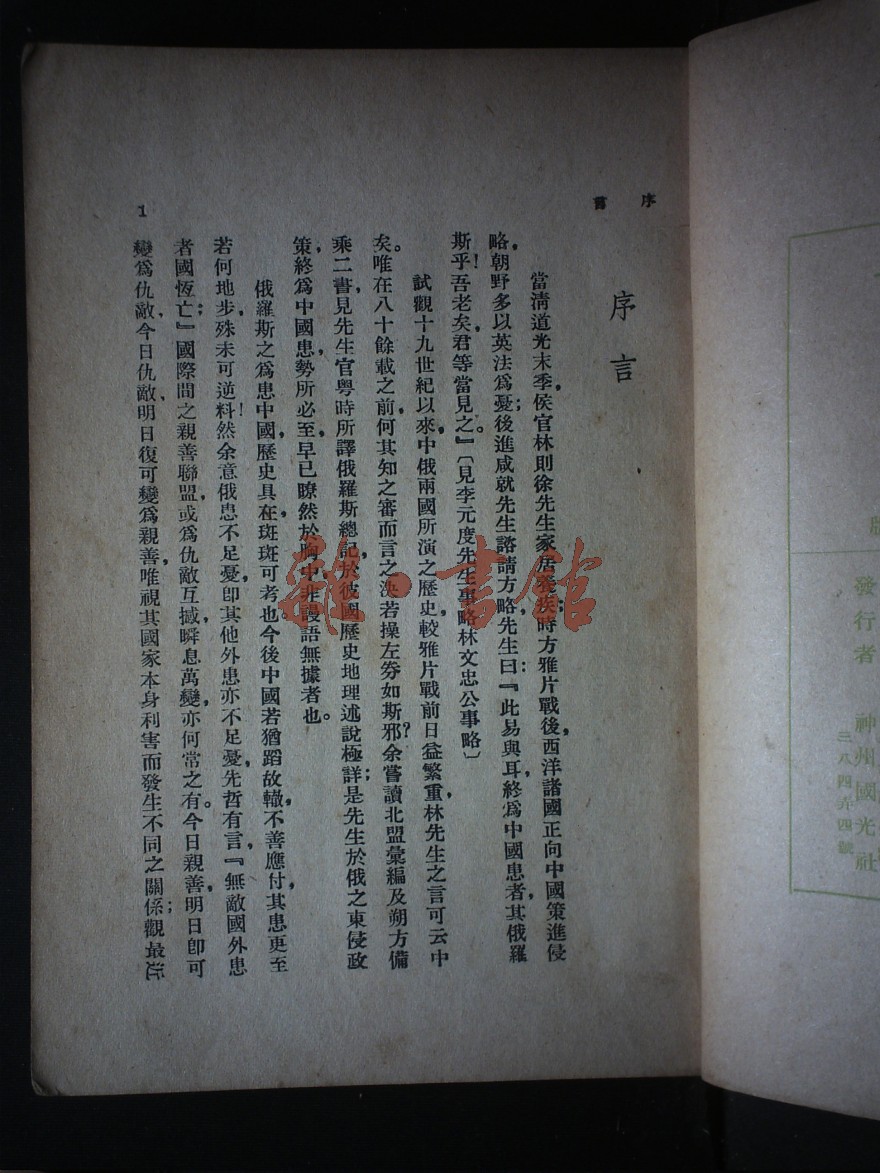 發行者 神州國光社
三八四弄四號
序言
序言
當清道光末季，侯官林則徐先生家居養疾；時方雅片戰後，西洋諸國正向中國策進侵
略，朝野多以英法為憂；後進咸就先生諮請方略，先生曰：『此易與耳，終為中國患者，其俄羅
斯乎！吾老矣，君等當見之。』〔見李元度先生事略林文忠公事略〕
試觀十九世紀以來，中俄兩國所演之歷史，較雅片戰前日益繁重，林先生之言可云中
矣。唯在八十餘載之前，何其知之審而言之決，若操左券如斯邪？余嘗讀北盟彙編及朔方備
乘二書，見先生官粵時所譯俄羅斯總記，於彼國歷史地理述說極詳；是先生於俄之東侵政
策，終為中國患，勢所必至，早已瞭然於胸中，非謾語無據者也。
俄羅斯之為患中國，歷史具在，斑斑可考也。今後中國若猶蹈故轍，不善應付，其患更至
若何地步，殊未可逆料！然余意俄患不足憂，即其他外患亦不足憂，先哲有言，『無敵國外患
者國恆亡；』國際間之親善聯盟，或為仇敵互撼，瞬息萬變，亦何常之有。今日親善，明日即可
變為仇敵，今日仇敵，明日復可變為親善，唯視其國家本身利害而發生不同之關係；觀最近
1
雜·書館